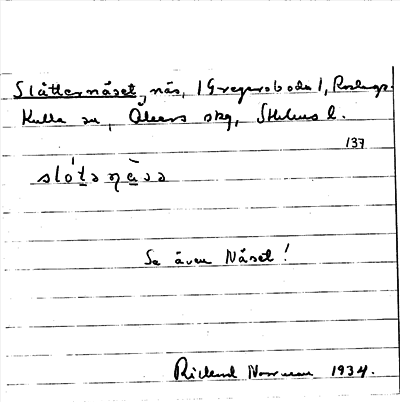 Slåtternäset, näs, /Gregersboda/, Roslags-
Kulla sn, Åkers skg, Sthlms l.
137
slótənä̀sə
Se även Näset!
Rickard Norrman 1934.